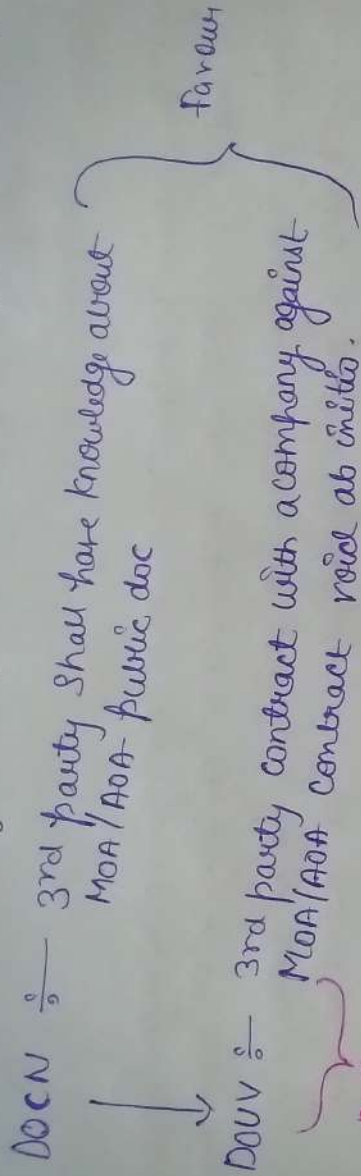 DOCN :- 3rd party shall have knowledge about
MOA/AOA - public doc
DOUV :- 3rd party contract with a company against
MOA/AOA contract void ab initio.
Favour